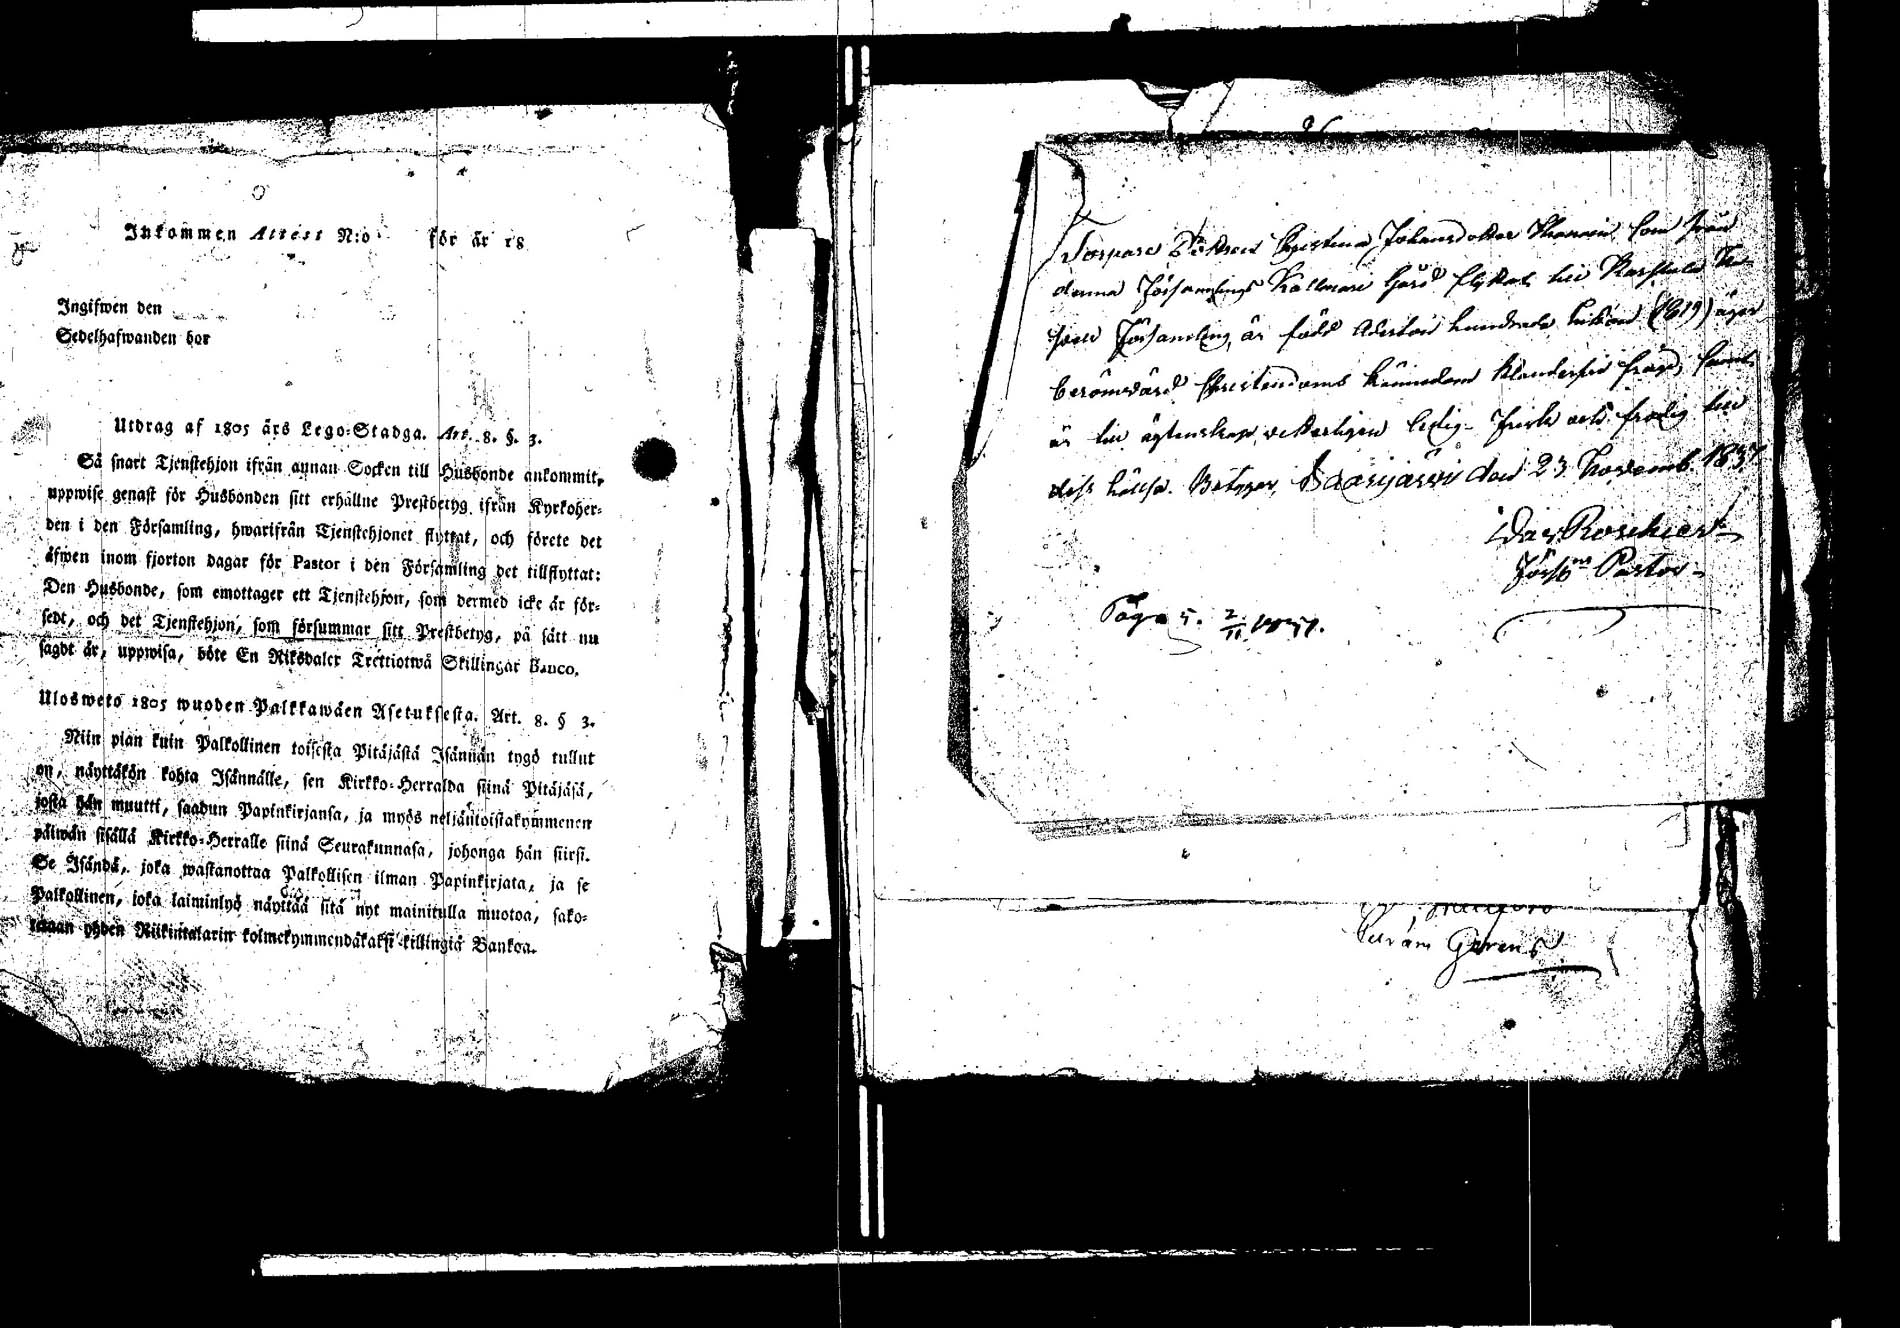 Inkommen Attest N:o för år 18
Ingifwen den
Sedelhafwanden bor
Utdrag af 1805 års Lego-Stadga. Art. 8. §. 3.
Så snart Tjenstehjon ifrån annan Socken till Husbonde ankommit,
uppwise genast för Husbonden sitt erhållne Prestbetyg ifrån Kyrkoher-
den i den Församling, hwarifrån Tjenstehjonet flyttat, och förete det
äfwen inom fjorton dagar för Pastor i den Församling det tillflyttat:
Den Husbonde, som emottager ett Tjenstehjon, som dermed icke är för-
sedt, och det Tjenstehjon, som försummar sitt Prestbetyg, på sätt nu
sagdt är, uppwisa, böte En Riksdaler Trettiotwå Skillingar Banco.
Ulosweto 1805 wuoden Palkkawäen Asetuksesta. Art. 8. § 3.
Niin pian kuin Palkollinen toisesta Pitäjästä Isännän tygö tullut
on, näyttäkön kohta Isännälle, sen Kirkko-Herralda siinä Pitäjäsä,
josta hän muutti, saadun Papinkirjansa, ja myös neljäntoistakymmenen
päiwän sisällä Kirkko-Herralle siinä Seurakunnasa, johonga hän siirsi.
Se Isändä, joka wastanottaa Palkollisen ilman Papinkirjata, ja se
Palkollinen, joka laiminlyö näyttää sitä nyt mainitulla muotoa, sako-
tetaan yhden Riikintalarin kolmekymmendäkaksi killingiä Bankoa.
Torpare Christina Johansdotter som från
denna Församlings Kallmari Gård flyttat till Karstula
Församling, är född Adertonhundrade nitton (1819) äger
berömvärd Christendoms kännedom klanderfri frägd, samt
är till ägtenskap veterligen ledig. Frisk och frodig till
dess hälsa. Betygar, Saarijärvi den 23 Novemb. 1837
Dav Roschier
Förs Pastor
Pag 5. 2/11 1837.